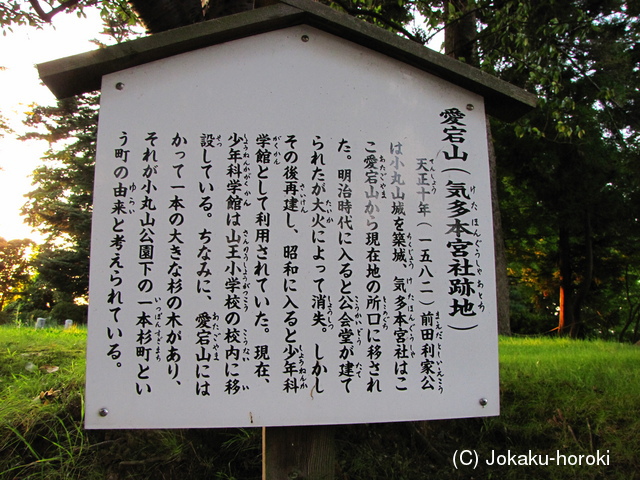 愛宕山(気多本宮社跡地)
天正十年(一五八二)前田利家公
は小丸山城を築城、気多本宮社はこ
こ愛宕山から現在地の所口に移され
た。明治時代に入ると公会堂が建て
られたが大火によって消失、しかし
その後再建し、昭和に入ると少年科
学館として利用されていた。現在、
少年科学館は山王小学校の校内に移
設している。ちなみに、愛宕山には
かつて一本の大きな杉の木があり、
それが小丸山公園下の一本杉町とい
う町の由来と考えられている。
(C) Jokaku-horoki